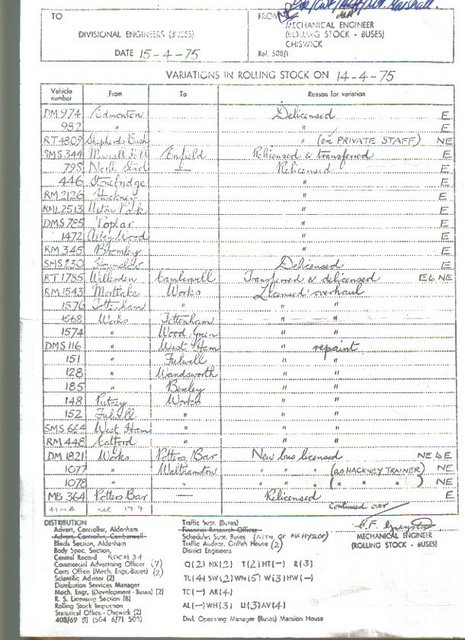 TO
FROM
DIVISIONAL ENGINEERS (BUSES)
MECHANICAL ENGINEER
(ROLLING STOCK - BUSES)
CHISWICK
DATE 15-4-75
VARIATIONS IN ROLLING STOCK ON 14-4-75
Vehicle number From To Reason for variation
DM 974 Edmonton Delicensed E
982 " " E
RT 4809 Shepherds Bush " (on PRIVATE STAFF) NE
SMS 344 Muswell Hill Enfield Relicensed & transferred E
795 North Street — Relicensed E
446 Stonebridge " E
RM 2126 Hackney " E
RML 2513 Upton Park " E
DMS 785 Poplar " E
1472 Abbey Wood " E
RM 345 Bromley " E
SMS 230 Delicensed E
RT 1785 Willesden Camberwell Transferred & delicensed E & NE
RM 1543 Mortlake Works Licensed overhaul
1576 Tottenham " " "
1568 Works Tottenham " "
1574 " Wood Green " "
DMS 116 " West Ham " repaint
151 " Fulwell " "
128 " Wandsworth " "
185 " Bexley " "
148 Putney Works " "
152 Fulwell " " "
SMS 664 West Ham " " "
RM 448 Catford " " "
DM 1821 Works Potters Bar New bus licensed NE & E
1077 " Walthamstow " " " (as HACKNEY TRAINER) NE
1078 " " " " " ( " ) NE
MB 364 Potters Bar — Relicensed E
Continued over
DISTRIBUTION
Advert. Controller, Aldenham
Advert. Controller, Camberwell
Blinds Section, Aldenham
Body Spec. Section,
Central Record ROOM 34
Commercial Advertising Officer (7)
Cants Office (Mech. Engr.-Buses) (2)
Scientific Adviser (2)
Distribution Services Manager
Mech. Engr. (Development - Buses) (2)
R. S. Licensing Section (8)
Rolling Stock Inspection
Statistical Office - Chiswick (2)
Traffic Supt. (Buses)
Financial Research Officer
Schedules Supt. Buses
Traffic Auditor, Griffith House (2)
District Engineers
Q(2) HX(2) T(2) HT(—) R(3)
TL(4) SW(2) WN(5) W(3) HW(—)
TC(—) AR(4)
AL(—) WH(3) U(3) AV(4)
Divl. Operating Manager (Buses) Mansion House
MECHANICAL ENGINEER
(ROLLING STOCK - BUSES)